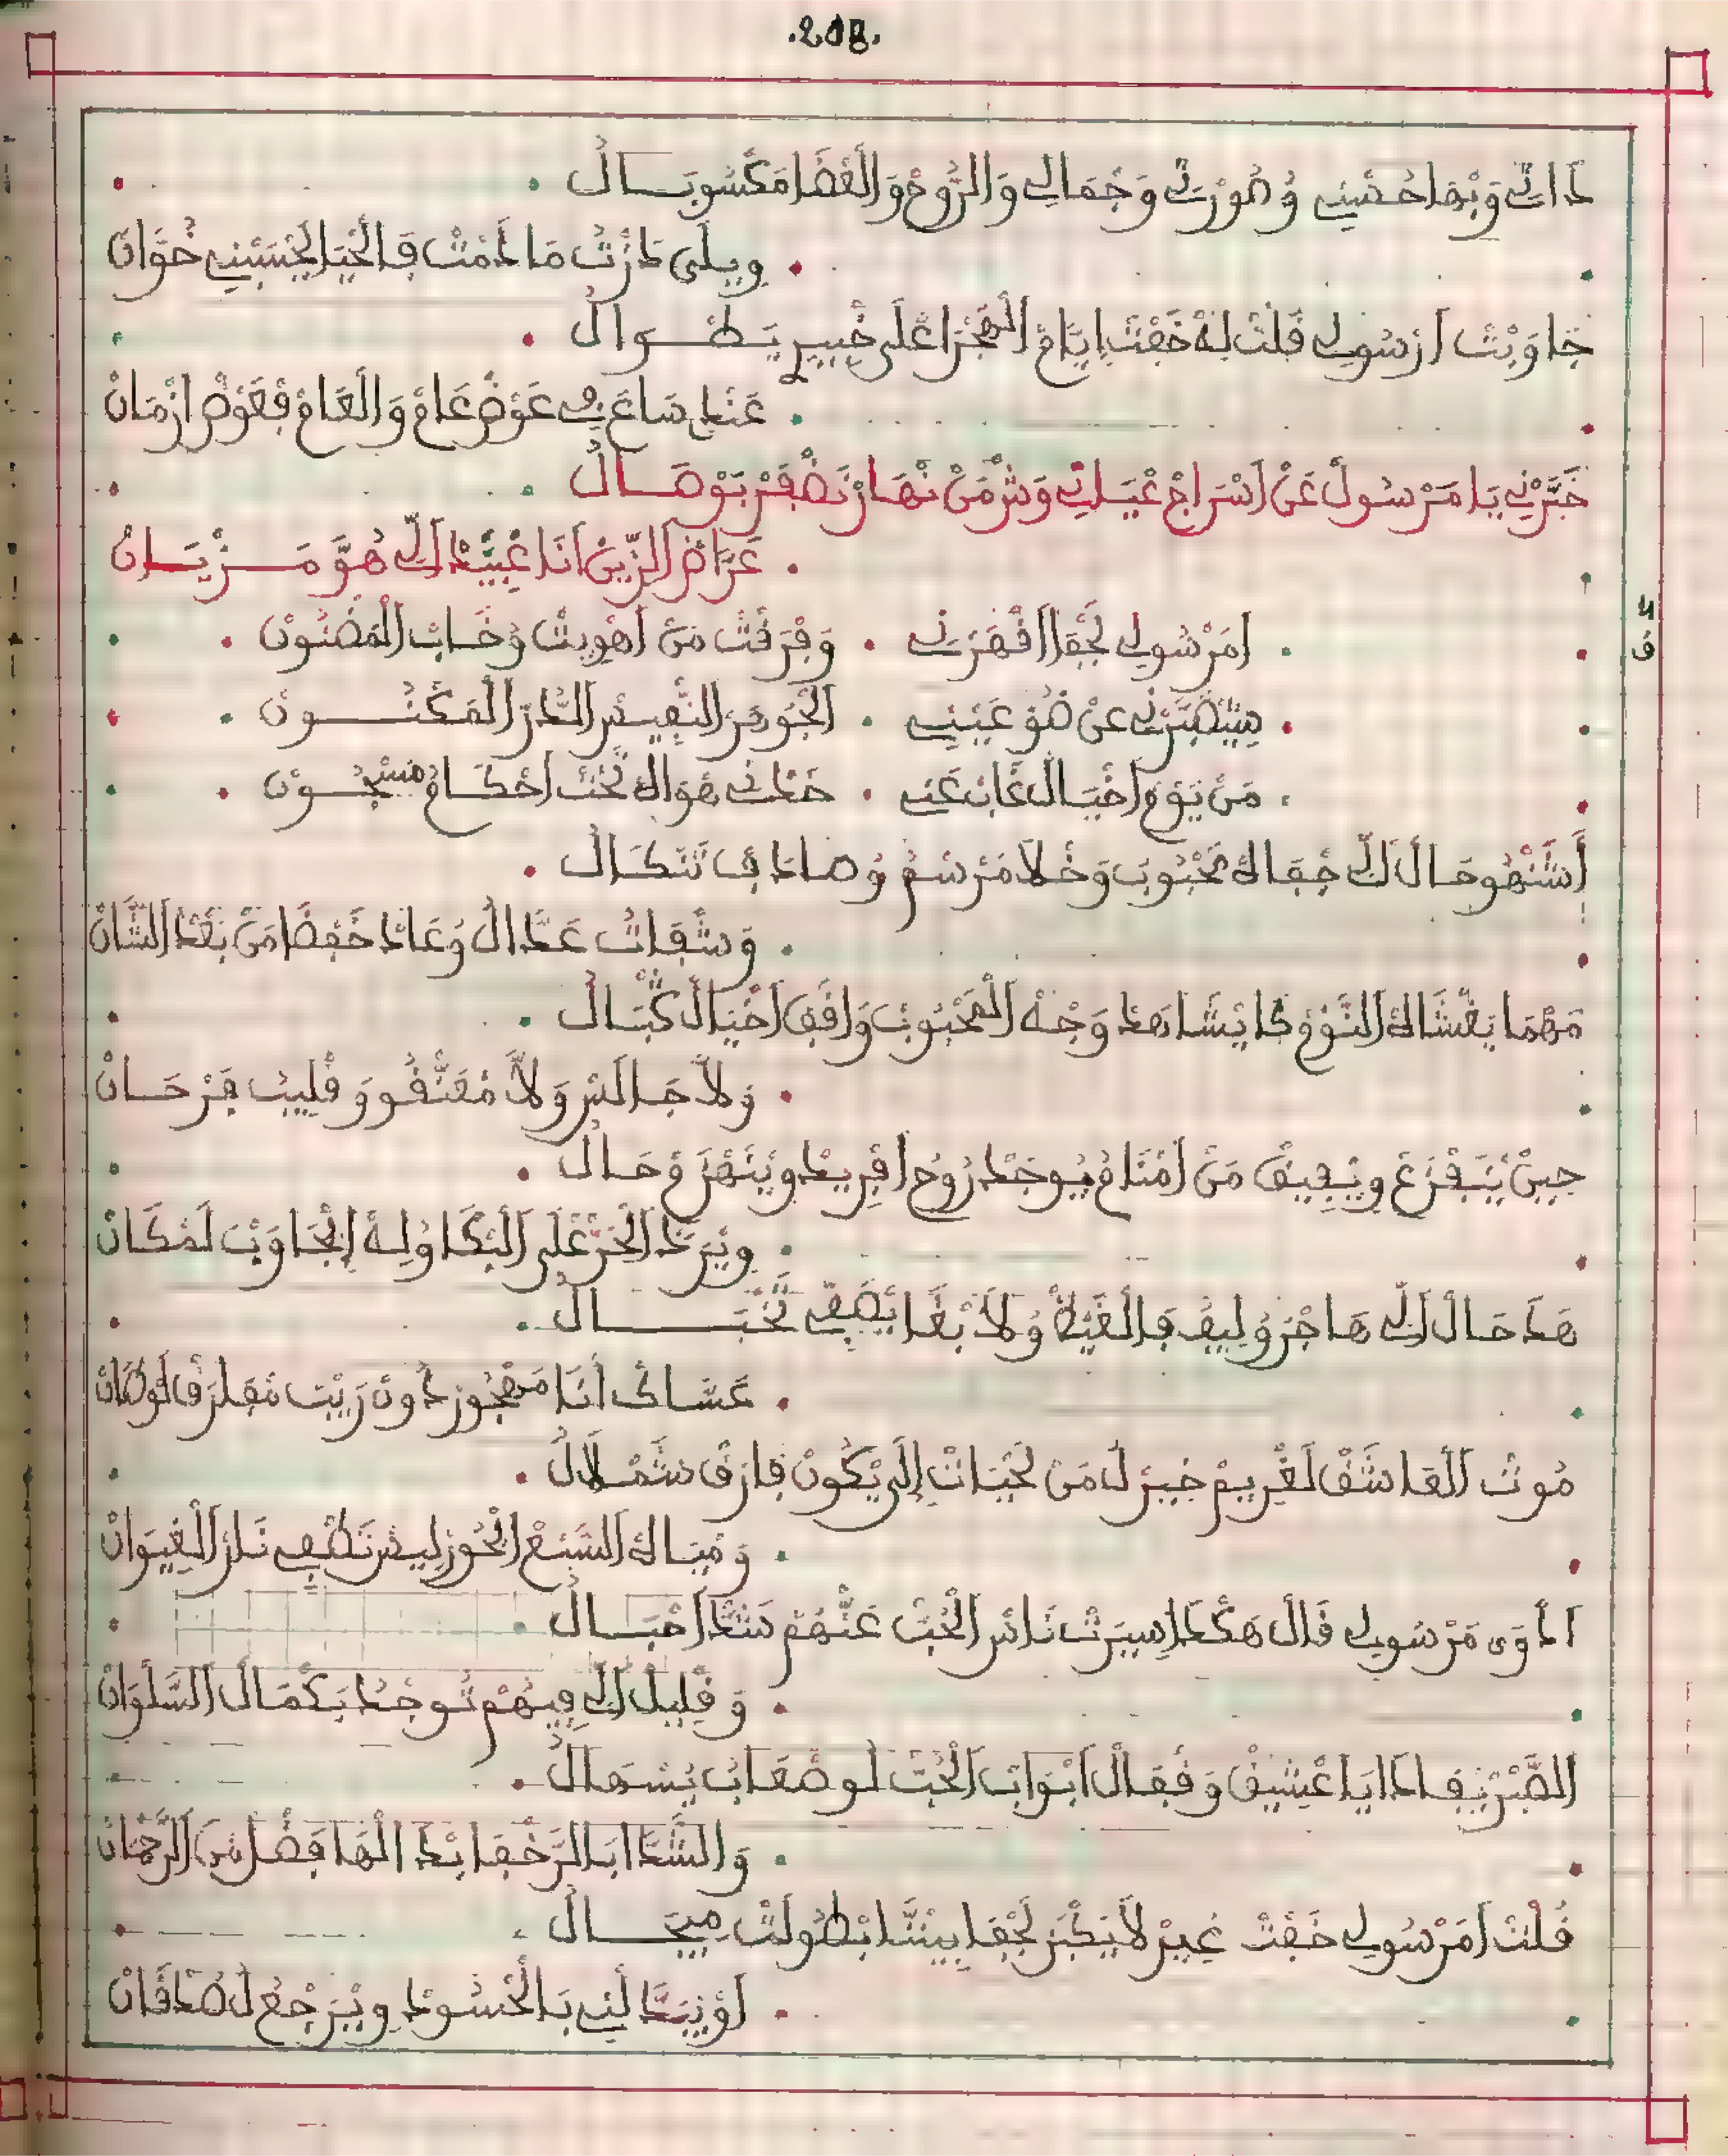 .208.
ذَاتِي وَبْهَا حُسْنِي وُصُورْتِي وَجْمَالِي وَالرُّوحْ وَالْعْضَا مَكْسُوبَـالُ
وِيلَى دَرْتْ مَا دَمْتْ فَالْحْيَا لَحْبِيبِي خُوَّانْ
جَاوَبْتْ ارْسُولِي قُلْتْ لِهْ خَفْتْ اِيَّامْ الْهْجَرْ اعْلَى خْبِيرِي يَـطْـوَالُ
عَنْدِي سَاعَ فِي عَوْضْ عَامْ وَالْعَامْ فْعَوْضْ ازْمَانْ
خَبَّرْنِي يَا مَرْسُولْ عَنْ اسْرَاجْ عْيَانِي وَشْ مَنْ نْهَارْ نَضْفَرْ بَوْصَـالُ
عَرَّاضْ الزِّينْ انَا عْبِيدْ الِّي هُوَّ مَـزْيَـانْ
امَرْسُولِي لَجْفَا اقْهَرْنِي . وَفْرَقْتْ مَنْ اهْوِيتْ وُغَـابْ الْمَضْنُونْ
عَنْ ضُوْ عَيْنِي . الْجُوهَرْ النْفِيسْ الدُّرْ الْمَكْنُـونْ
مَنْ يَوْمْ اخْيَالُ غَابْ عَنِّي . خَلَّانِي هْوَاهْ تَحْتْ احْكَـامُ مَسْجُـونْ
أَشْنْهُو حَالْ الِّي جْفَاهْ مَحْبُوبُ وَخْلَا مَرْسْمُ وُصَادْ فِي تَنْكَـالْ
وَشْفَاتْ عَدَّالُ وُعَادْ خَفْضَا مَنْ بَعْدْ الشَّانْ
مَهْمَا يَغْشَاهْ النَّوْمْ كَا يْشَاهَدْ وَجْهْ الْمَحْبُوبْ وَافَقْ اخْيَالُ كْبَـالُ
وَلَّا جَالَسْ وَلَّا مْعَنْقُو وَقْلِيبُ فَرْحَـانْ
حِينْ يَفْزَعْ وِيْفِيقْ مَنْ امْنَامُ يُوجَدْ رُوحُ افْرِيدْ وِيَنْهَزَمْ حَـالُ
وِيْرَدْ الْحَرْ عْلَى الْبْكَا وُلِهْ اِيْجَاوَبْ لَمْكَانْ
هَذَا حَالْ الِّي هَاجْرُ وْلِيفُ فَالْغَيْضْ وُلَا بْغَا يَصْفِي تَخْبَـالُ
عَسَّاكْ أَنَا مَهْجُورْ دُونْ رَيْبْ
مُوتْ الْعَاشَقْ لَغْرِيمْ خِيرْ لُ مَنْ لَحْيَاتْ اِلَى يْكُونْ فَارَقْ شَمْـلَالُ
وَمْيَاهْ السَّبْعْ ابْحُورْ لِيسْ تَطْفِي نَارْ الْغِيوَانْ
ادْوَى مَرْسُولِي قَالْ هَكْدَا سِيرْتْ نَاسْ الْحُبْ عَنْهُمْ شَدَّ احْبَـالُ
وَقْلِيلْ الِّي فِيهُمْ تُوجْدُ بَكْمَالْ السَّلْوَانْ
الصَّبْرْ يْفَادْ ايَا عْشِيقْ وَقْفَالْ ابْوَابْ الْحُبْ لُو صْعَابُ يْسْهَالُ
وَالشَّدَّا بَالرَّخْفَا بْدَالْهَا فَضْلْ مَنْ الرَّحْمَانْ
قُلْتْ امَرْسُولِي خَفْتْ غِيرْ لَا يَكْبَرْ لَجْفَا بِينَّا ابْطُولْتْ مِيجَـالُ
اوْيَنْدَّ لْنِي بَالْحْسُودْ وِيَرْجَعْ لْصْدْقَانْ